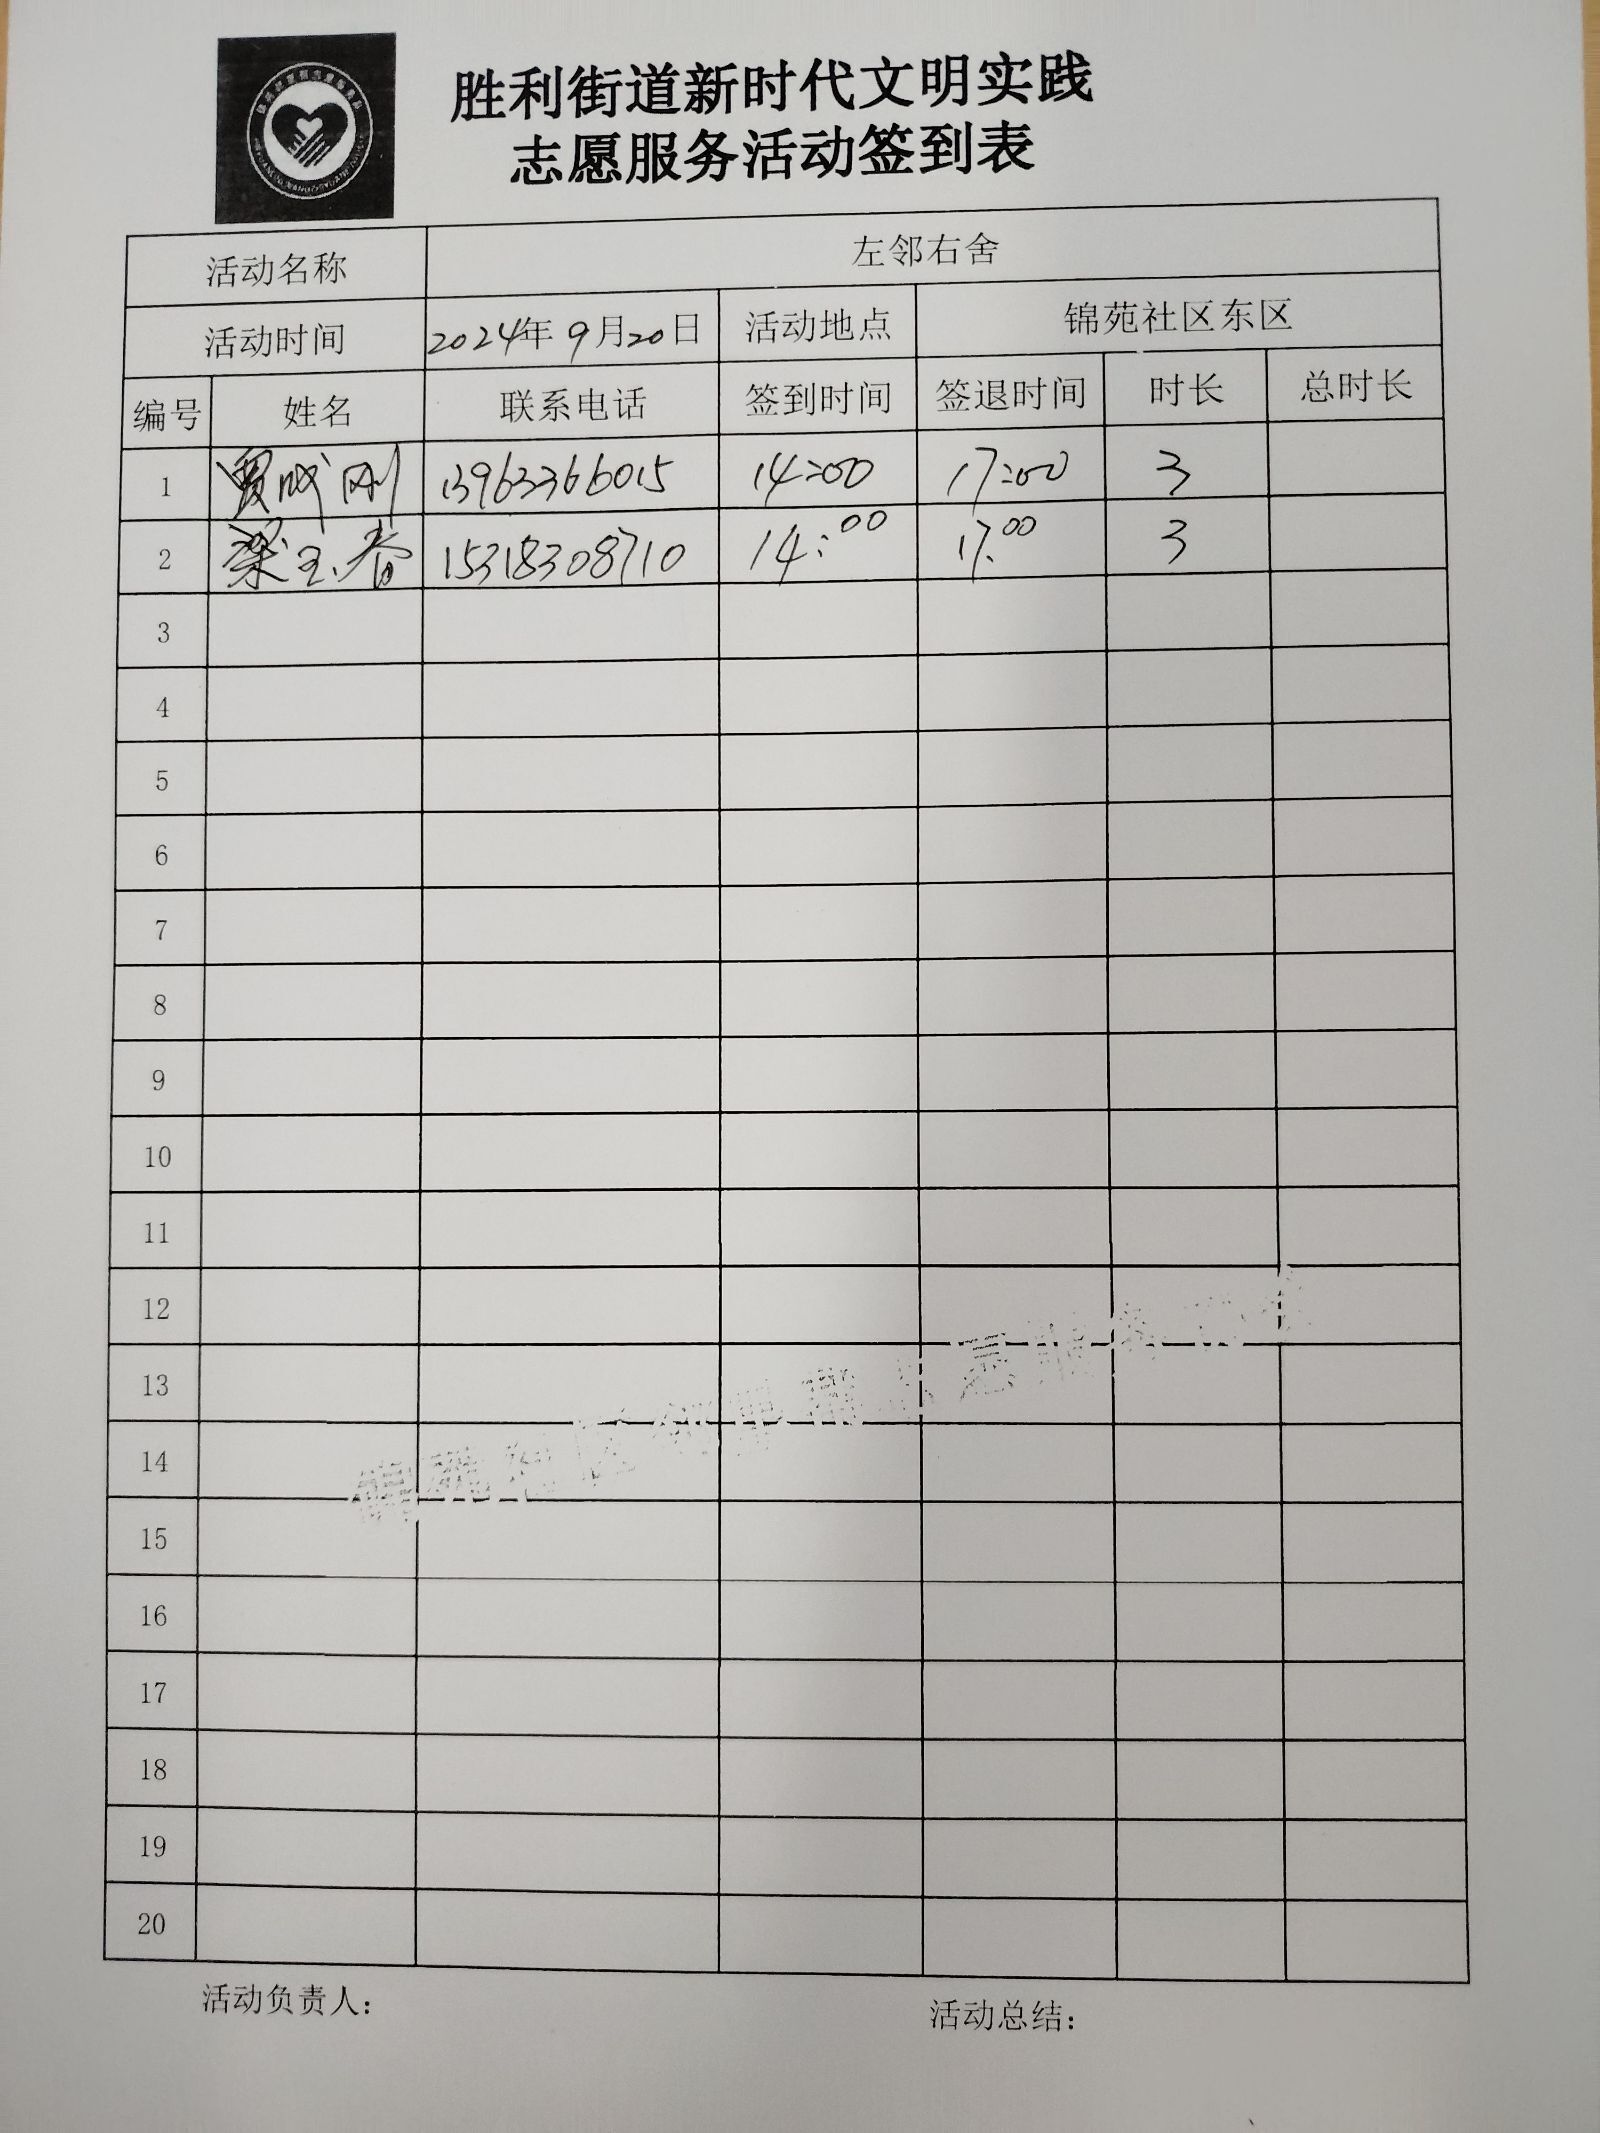 胜利街道新时代文明实践
志愿服务活动签到表
活动名称 左邻右舍
活动时间 2024年9月20日 活动地点 锦苑社区东区
编号 姓名 联系电话 签到时间 签退时间 时长 总时长
1 贾成刚 13963366015 14:00 17:00 3
2 梁玉春 15318308710 14:00 17:00 3
3
4
5
6
7
8
9
10
11
12
13
14
15
16
17
18
19
20
活动负责人: 活动总结: